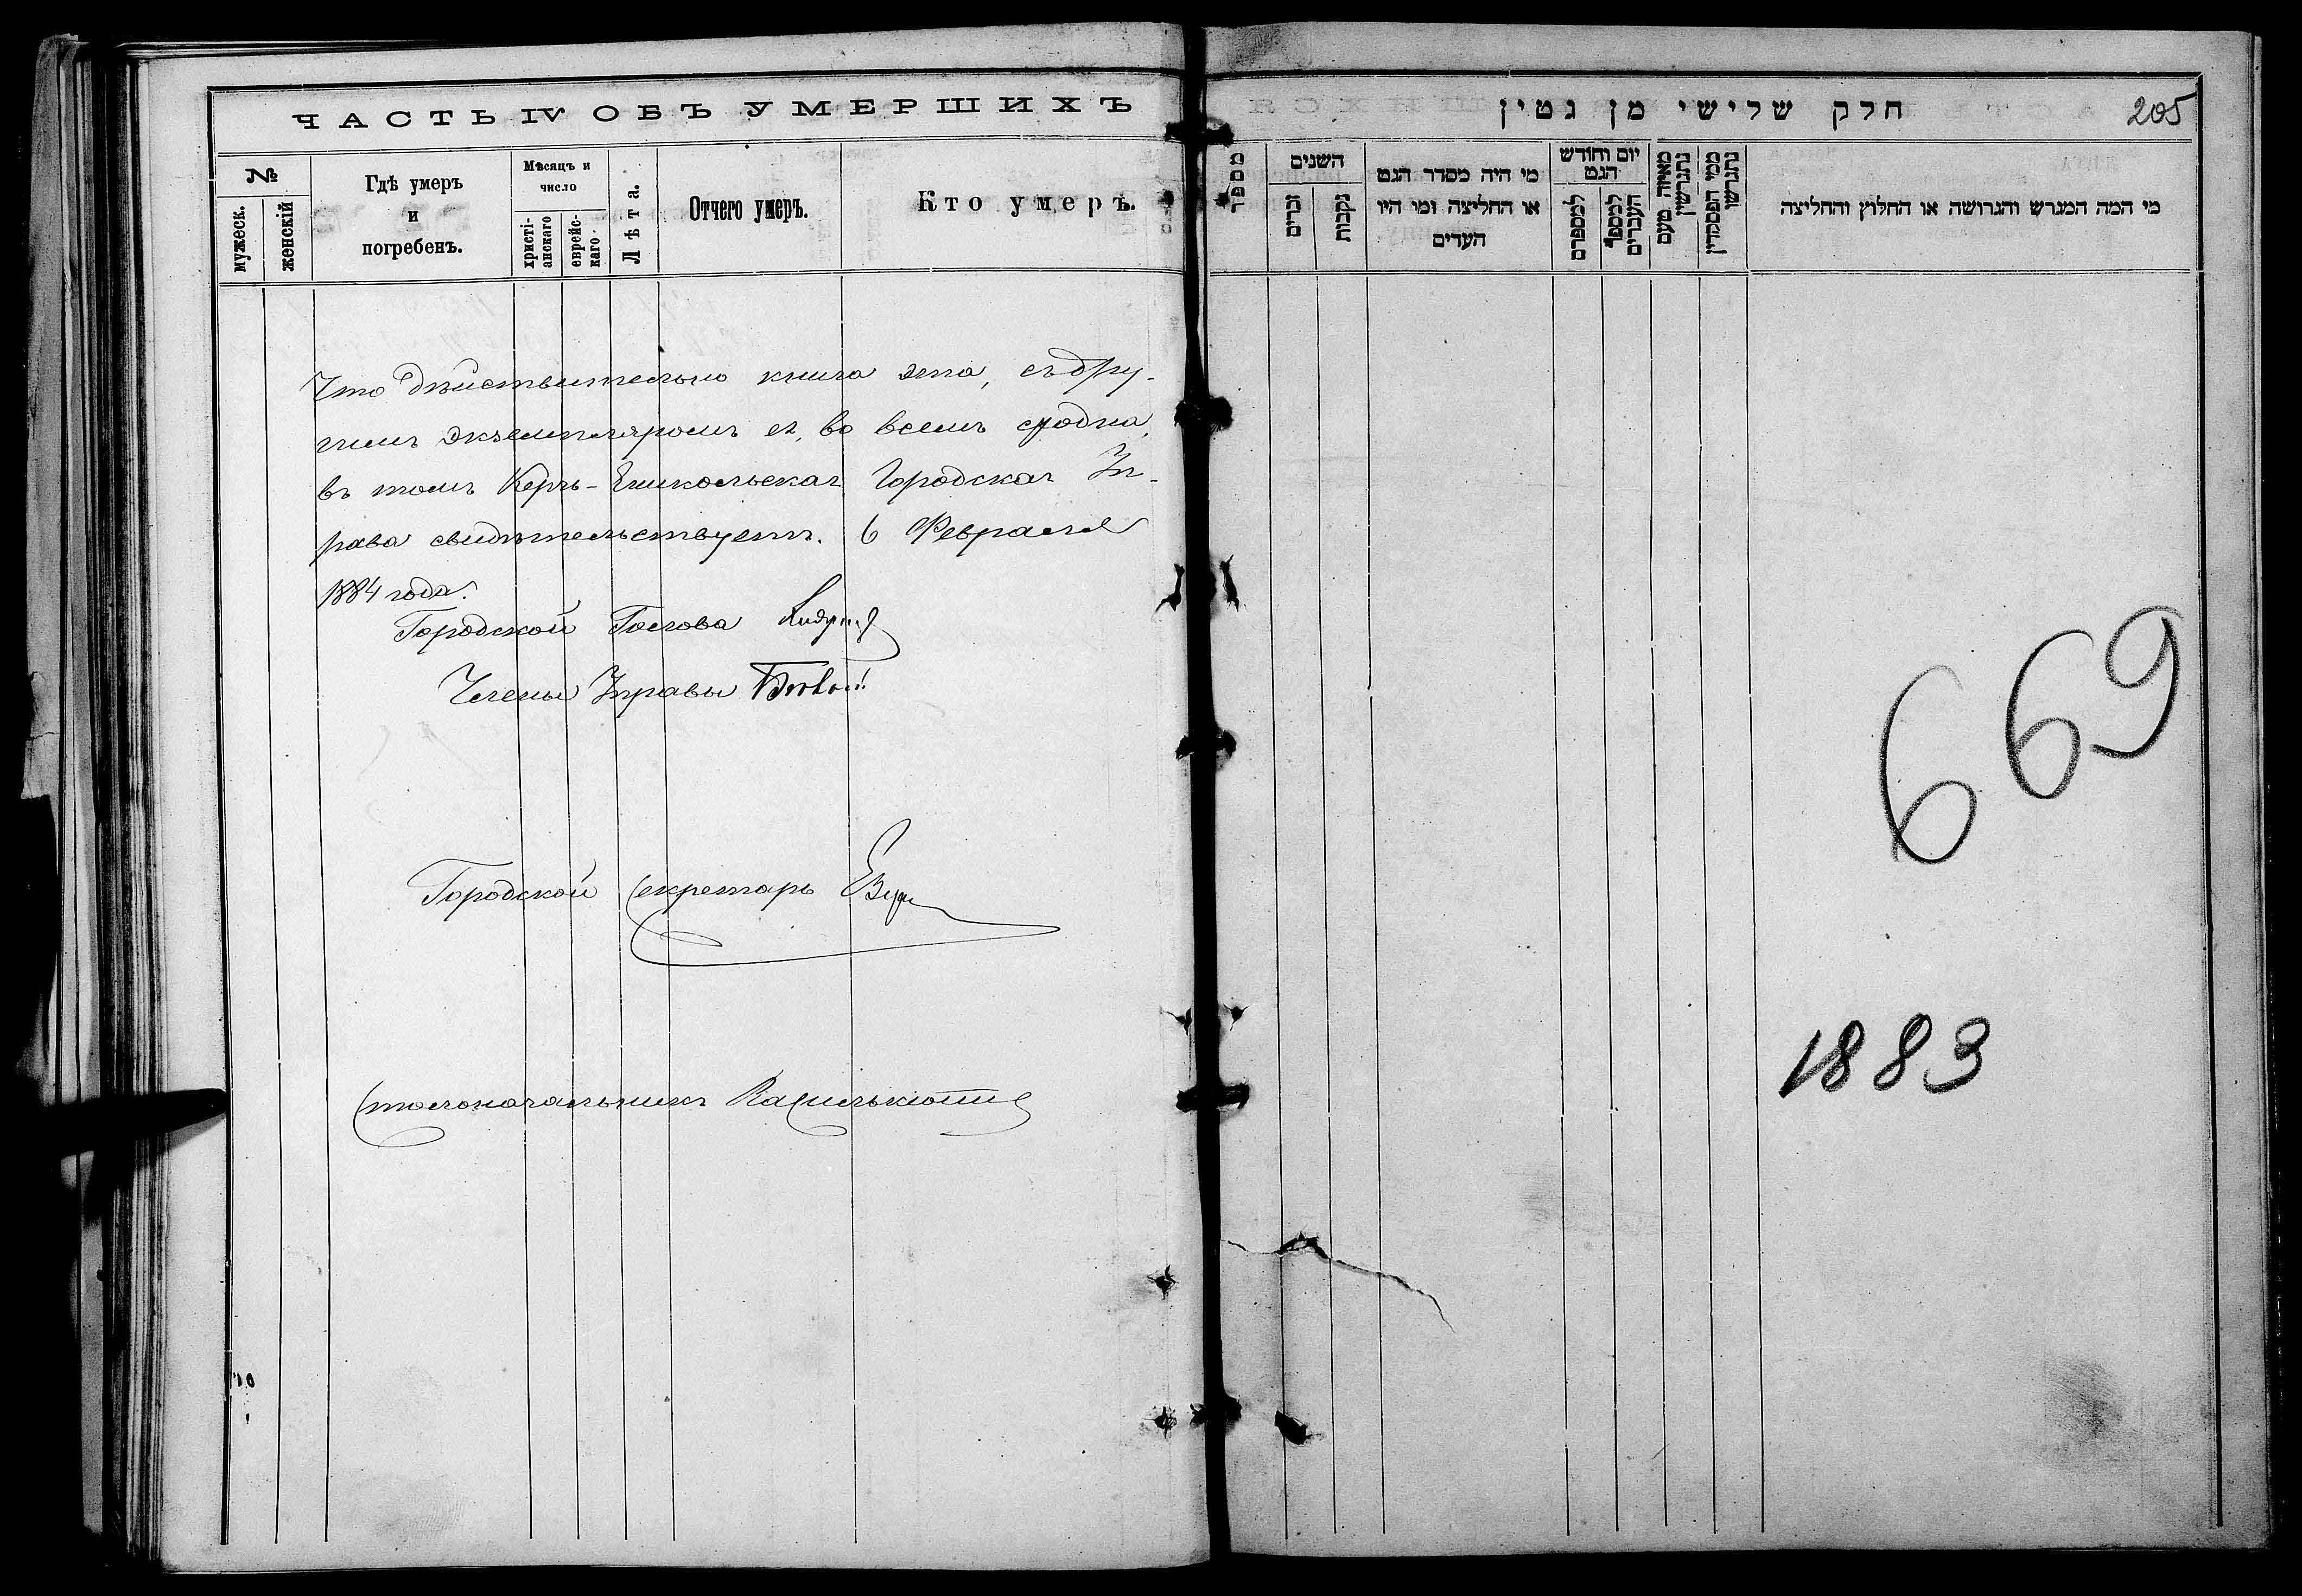 ЧАСТЬ IV ОБЪ УМЕРШИХЪ
№
мужеск.
женскій
Гдѣ умеръ
и
погребенъ.
Мѣсяцъ и
число
христі-
анскаго
еврейс-
каго
Лѣта.
Отчего умеръ.
Кто умеръ.
Что дѣйствительно книга эта, съ дру-
гимъ экземпляромъ ея, во всемъ сходна,
въ томъ Керчь-Еникольская Городская Уп-
рава свидѣтельствуетъ. 6 Февраля
1884 года.
Городской Голова
Члены Управы
Городской Секретарь
Столоначальникъ
חלק שלישי מן גטין
205
מספר
השנים
זכרים
נקבות
מי היה מסדר הגט
או החליצה ומי היו
העדים
יום וחודש
הגט
למספרם
למספר
העברים
מאיזה טעם
נתגרשו
ממי
נתגרשו
מי המה המגרש והגרושה או החלוץ והחליצה
669
1883